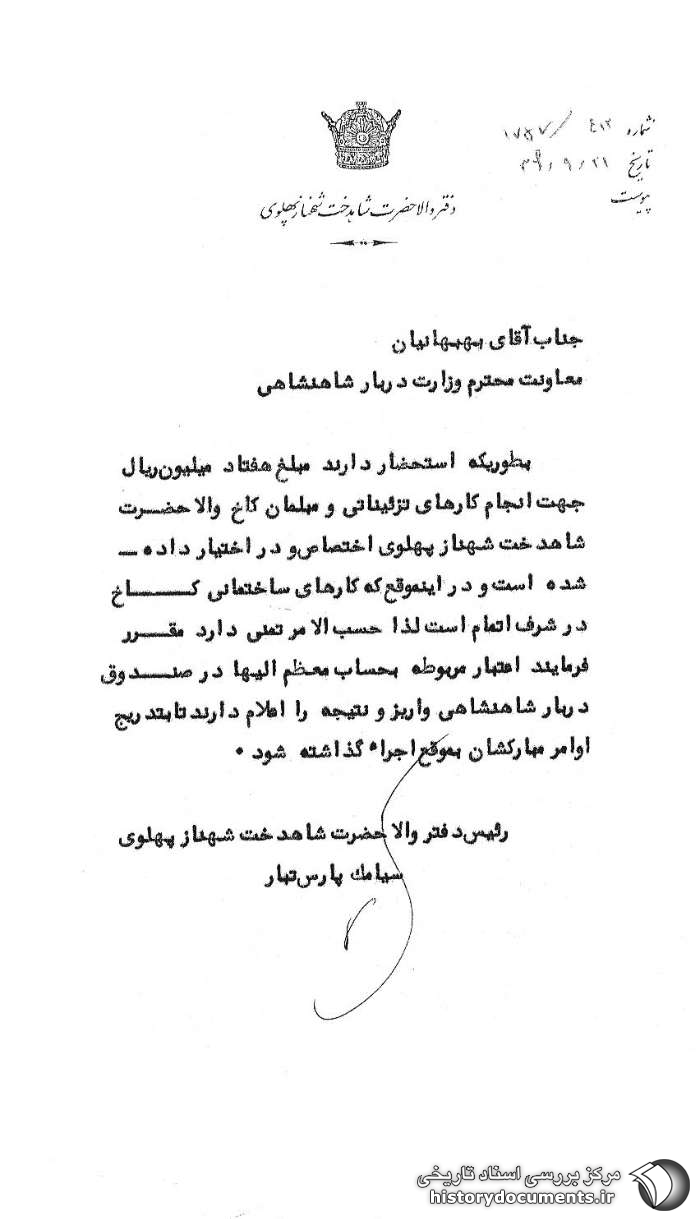 شماره ۴۱۲ / ۱۷۵۷
تاریخ ۳۹/۹/۲۱
پیوست
دفتر والاحضرت شاهدخت شهناز پهلوی
جناب آقای بهبهانیان
معاونت محترم وزارت دربار شاهنشاهی
بطوریکه استحضار دارند مبلغ هفتاد میلیون ریال
جهت انجام کارهای تزئیناتی و مبلمان کاخ والاحضرت
شاهدخت شهناز پهلوی اختصاص و در اختیار داده
شده است و در اینموقع که کارهای ساختمانی کاخ
در شرف اتمام است لذا حسب الامر تمنی دارد مقرر
فرمایند اعتبار مربوطه بحساب معظم الیها در صندوق
دربار شاهنشاهی واریز و نتیجه را اعلام دارند تا بتدریج
اوامر مبارکشان بموقع اجراء گذاشته شود .
رئیس دفتر والاحضرت شاهدخت شهناز پهلوی
سیامك پارس تبار
مرکز بررسی اسناد تاریخی
historydocuments.ir